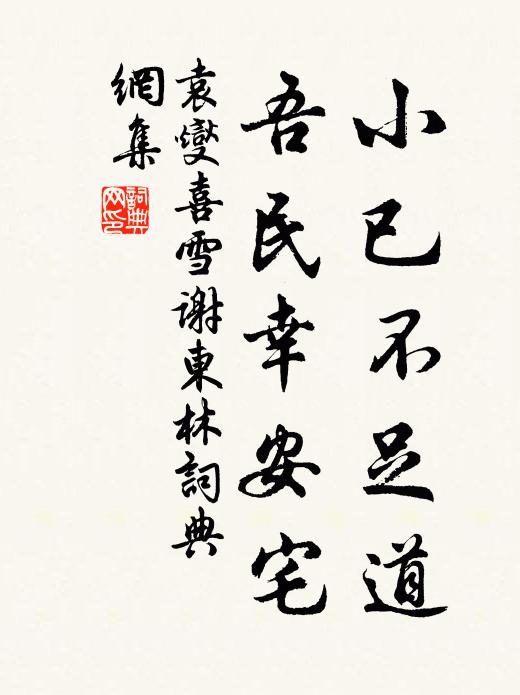 小已不足道
吾民幸安宅
袁燮喜雪謝東林詞典
網集
詞典
网印